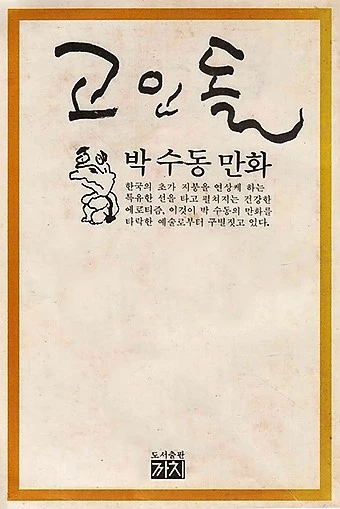 고인돌
박 수동 만화
한국의 초가 지붕을 연상케 하는
특유한 선을 타고 펼쳐지는 건강한
에로티즘, 이것이 박 수동의 만화를
타락한 예술로부터 구별짓고 있다.
도서출판
까치